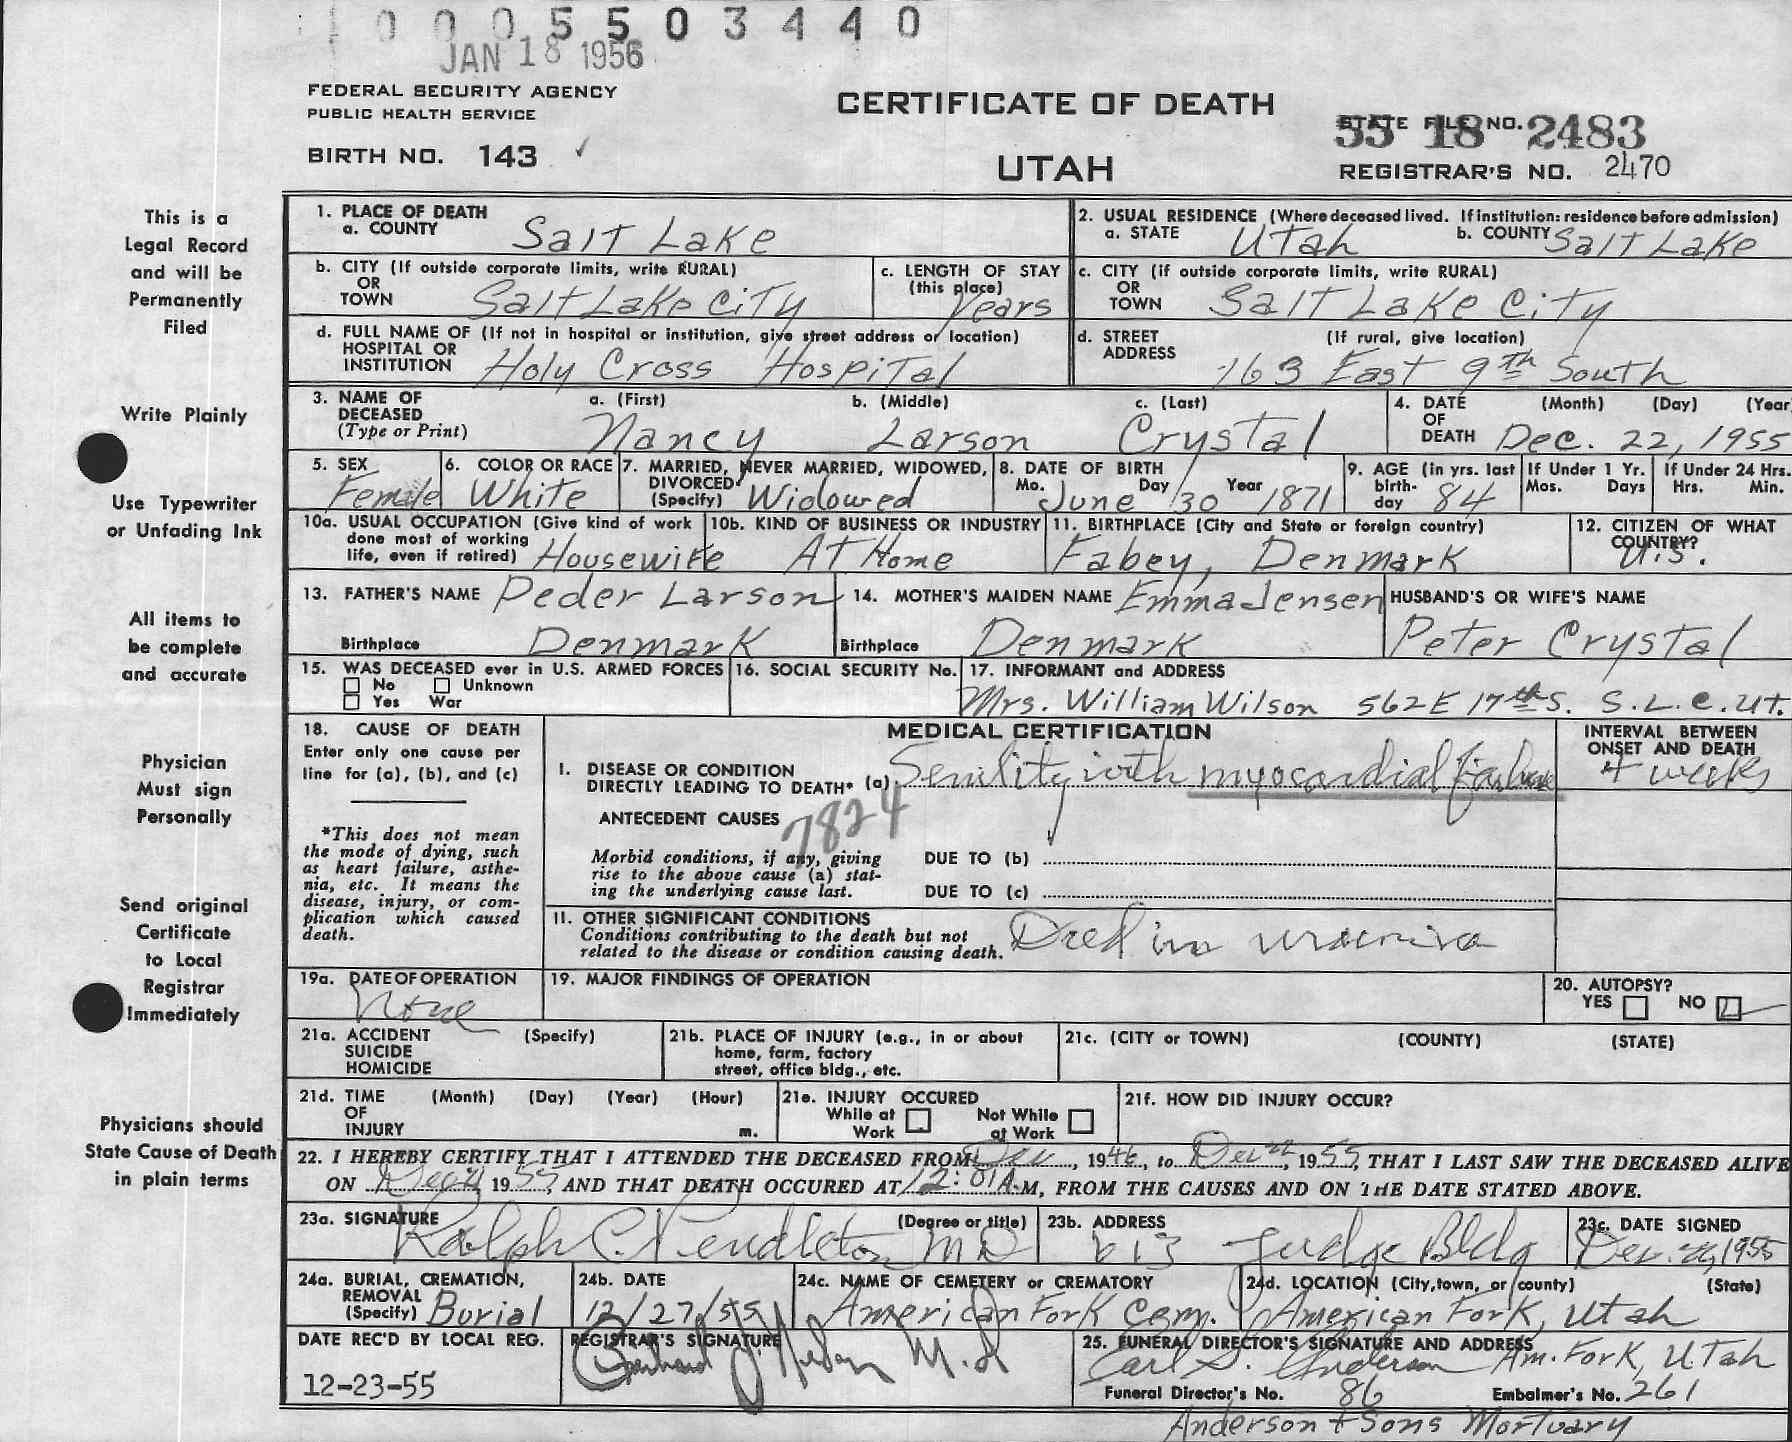 0 0 0 5 5 0 3 4 4 0
JAN 18 1956
FEDERAL SECURITY AGENCY
PUBLIC HEALTH SERVICE
BIRTH NO. 143 ✓
CERTIFICATE OF DEATH
UTAH
STATE FILE NO.
55 18 2483
REGISTRAR'S NO. 2470
This is a
Legal Record
and will be
Permanently
Filed
Write Plainly
Use Typewriter
or Unfading Ink
All items to
be complete
and accurate
Physician
Must sign
Personally
Send original
Certificate
to Local
Registrar
Immediately
Physicians should
State Cause of Death
in plain terms
1. PLACE OF DEATH
a. COUNTY Salt Lake
2. USUAL RESIDENCE (Where deceased lived. If institution: residence before admission)
a. STATE Utah b. COUNTY Salt Lake
b. CITY (If outside corporate limits, write RURAL)
OR
TOWN Salt Lake City
c. LENGTH OF STAY
(this place)
Years
c. CITY (if outside corporate limits, write RURAL)
OR
TOWN Salt Lake City
d. FULL NAME OF (If not in hospital or institution, give street address or location)
HOSPITAL OR
INSTITUTION Holy Cross Hospital
d. STREET (If rural, give location)
ADDRESS 163 East 9th South
3. NAME OF
DECEASED
(Type or Print)
a. (First) b. (Middle) c. (Last)
Nancy Larson Crystal
4. DATE (Month) (Day) (Year
OF
DEATH Dec. 22, 1955
5. SEX
Female
6. COLOR OR RACE
White
7. MARRIED, NEVER MARRIED, WIDOWED,
DIVORCED
(Specify) Widowed
8. DATE OF BIRTH
Mo. Day Year
June 30 1871
9. AGE (in yrs. last
birth-
day 84
If Under 1 Yr.
Mos. Days
If Under 24 Hrs.
Hrs. Min.
10a. USUAL OCCUPATION (Give kind of work
done most of working
life, even if retired) Housewife
10b. KIND OF BUSINESS OR INDUSTRY
At Home
11. BIRTHPLACE (City and State or foreign country)
Fabey, Denmark
12. CITIZEN OF WHAT
COUNTRY?
U.S.
13. FATHER'S NAME Peder Larson
Birthplace Denmark
14. MOTHER'S MAIDEN NAME Emma Jensen
Birthplace Denmark
HUSBAND'S OR WIFE'S NAME
Peter Crystal
15. WAS DECEASED ever in U.S. ARMED FORCES
No Unknown
Yes War
16. SOCIAL SECURITY No.
17. INFORMANT and ADDRESS
Mrs. William Wilson 562 E 17th S. S.L.C. Ut.
18. CAUSE OF DEATH
Enter only one cause per
line for (a), (b), and (c)
*This does not mean
the mode of dying, such
as heart failure, asthe-
nia, etc. It means the
disease, injury, or com-
plication which caused
death.
MEDICAL CERTIFICATION
I. DISEASE OR CONDITION
DIRECTLY LEADING TO DEATH* (a) Senility with myocardial failure
INTERVAL BETWEEN
ONSET AND DEATH
4 weeks
ANTECEDENT CAUSES
7824
Morbid conditions, if any, giving
rise to the above cause (a) stat-
ing the underlying cause last.
DUE TO (b)
DUE TO (c)
II. OTHER SIGNIFICANT CONDITIONS
Conditions contributing to the death but not
related to the disease or condition causing death.
Died in uraemia
19a. DATE OF OPERATION
None
19. MAJOR FINDINGS OF OPERATION
20. AUTOPSY?
YES NO
21a. ACCIDENT (Specify)
SUICIDE
HOMICIDE
21b. PLACE OF INJURY (e.g., in or about
home, farm, factory
street, office bldg., etc.
21c. (CITY or TOWN) (COUNTY) (STATE)
21d. TIME (Month) (Day) (Year) (Hour)
OF
INJURY m.
21e. INJURY OCCURED
While at Work
Not While at Work
21f. HOW DID INJURY OCCUR?
22. I HEREBY CERTIFY THAT I ATTENDED THE DECEASED FROM , 1946, to Dec 22, 1955, THAT I LAST SAW THE DECEASED ALIVE
ON 1955, AND THAT DEATH OCCURED AT 12:01 A.M, FROM THE CAUSES AND ON THE DATE STATED ABOVE.
23a. SIGNATURE (Degree or title)
Ralph C. Pendleton MD
23b. ADDRESS
613 Judge Bldg
23c. DATE SIGNED
Dec. 1955
24a. BURIAL, CREMATION,
REMOVAL
(Specify) Burial
24b. DATE
12/27/55
24c. NAME OF CEMETERY or CREMATORY
American Fork Cem.
24d. LOCATION (City, town, or county) (State)
American Fork, Utah
DATE REC'D BY LOCAL REG.
12-23-55
REGISTRAR'S SIGNATURE
M.D
25. FUNERAL DIRECTOR'S SIGNATURE AND ADDRESS
Carl S. Anderson Am. Fork, Utah
Funeral Director's No. 86 Embalmer's No. 261
Anderson + Sons Mortuary